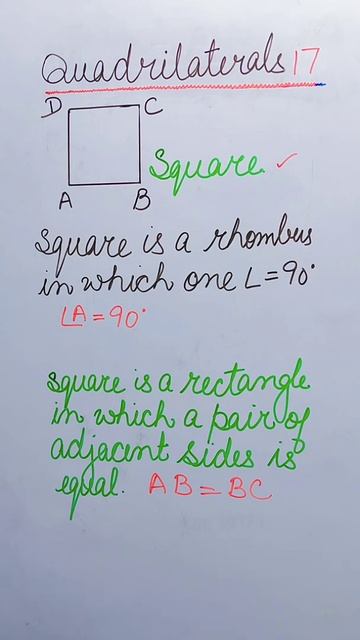 Quadrilaterals 17
D C
Square ✓
A B
Square is a rhombus
in which one ∠=90°
∠A=90°
square is a rectangle
in which a pair of
adjacent sides is
equal. AB=BC